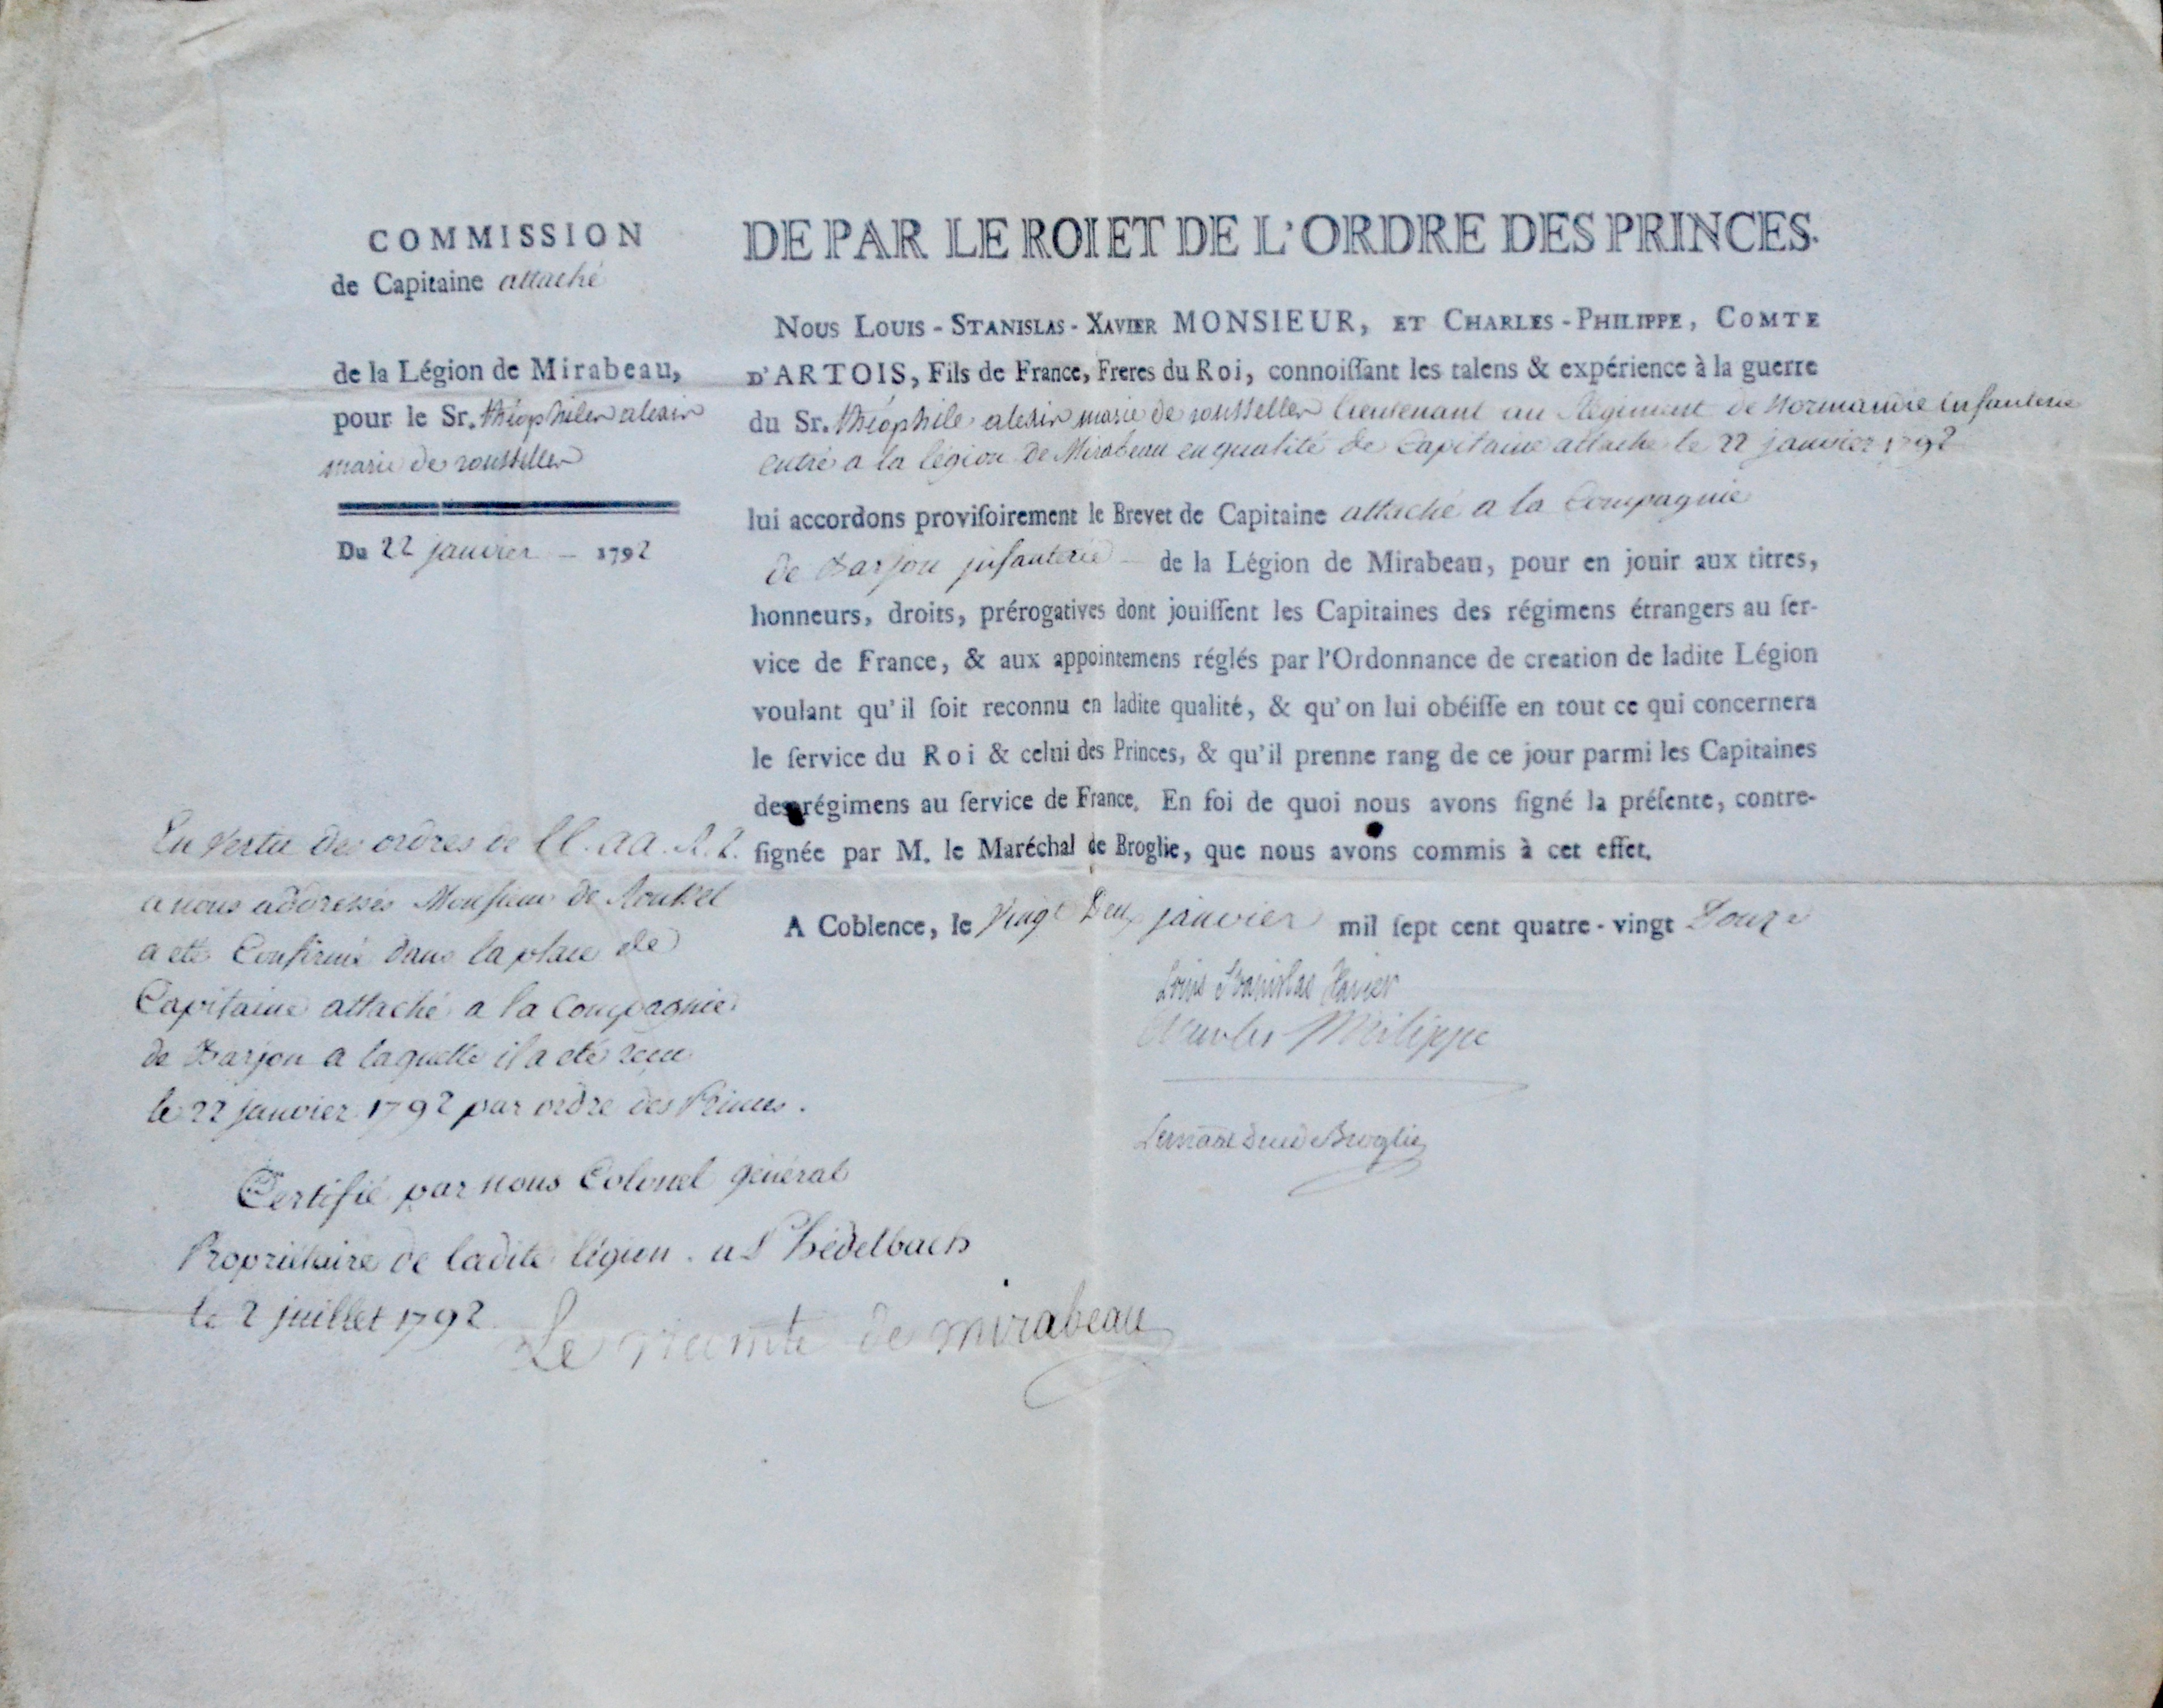 COMMISSION
de Capitaine attaché
de la Légion de Mirabeau,
pour le Sr. théophile alexis
marie de
Du 22 janvier – 1792
DE PAR LE ROI ET DE L'ORDRE DES PRINCES.
Nous Louis-Stanislas-Xavier MONSIEUR, et Charles-Philippe, Comte
d'ARTOIS, Fils de France, Freres du Roi, connoiſſant les talens & expérience à la guerre
du Sr. théophile alexis marie de lieutenant au Régiment de Normandie infanterie
entré a la légion de Mirabeau en qualité de Capitaine attaché le 22 janvier 1792
lui accordons proviſoirement le Brevet de Capitaine attaché a la Compagnie
de Barjon infanterie – de la Légion de Mirabeau, pour en jouir aux titres,
honneurs, droits, prérogatives dont jouiſſent les Capitaines des régimens étrangers au ſer-
vice de France, & aux appointemens réglés par l'Ordonnance de creation de ladite Légion
voulant qu'il ſoit reconnu en ladite qualité, & qu'on lui obéiſſe en tout ce qui concernera
le ſervice du Roi & celui des Princes, & qu'il prenne rang de ce jour parmi les Capitaines
des régimens au ſervice de France. En foi de quoi nous avons ſigné la préſente, contre-
ſignée par M. le Maréchal de Broglie, que nous avons commis à cet effet.
A Coblence, le vingt Deux janvier mil ſept cent quatre-vingt Douze
Louis Stanislas Xavier
Charles Philippe
Le mal duc de Broglie
En Vertu des ordres de LL. AA. R.R.
a nous addressés Monsieur de
a été Confirmé dans la place de
Capitaine attaché a la Compagnie
de Barjon a laquelle il a été recu
le 22 janvier 1792 par ordre des Princes.
Certifié par nous Colonel général
Propriétaire de ladite légion.
le 2 juillet 1792
Le vicomte de mirabeau